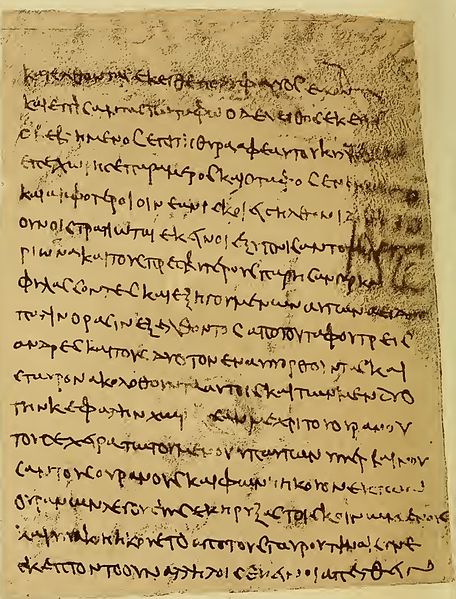 κατελθοντας εκειθεν πολυ φεγγος
και επισαντας τω ταφω ο δε λειθος εκει
ο βεβλημενος επι τη θυρα αφ εαυτου
επεχωρησε παρα μερος και ο ταφος
και αμφοτεροι οι νεανισκοι εισηλθον
ουν οι στρατιωται εκεινοι εξυπνισαν τον
ριωνα και τους πρεσβυτερους παρησαν γαρ
φυλασσοντες και εξηγουμενων αυτων
παλιν ορασιν εξελθοντος απο του ταφου τρεις
ανδρες και τους δυο τον ενα υπορθουντας και
σταυρον ακολοθουντα αυτοις και των μεν δυο
την κεφαλην μεχρι του ουρανου
του δε χειρατωτουμενου υπ αυτων υπερβαινου
σαν τους ουρανους και φωνης ηκουον εκ των
ουρανων λεγουσης εκηρυξας τοις κοινωμενοις
και υπακοη ηκουετο απο του σταυρου
σκεπτοντο ουν αλληλοις εκεινοι απελθειν